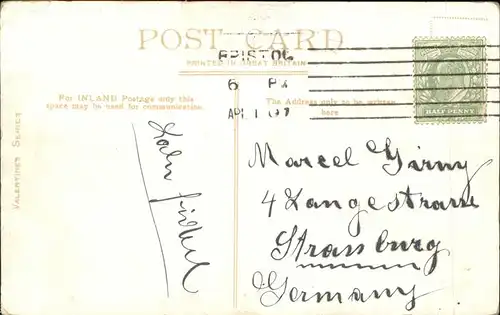 POST CARD
PRINTED IN GREAT BRITAIN
BRISTOL
6 PM
AP 1 07
HALFPENNY
For INLAND Postage only this
space may be used for communication.
The Address only to be written
here
VALENTINES SERIES
Marcel
4 Langestrasse
Strassburg
Germany